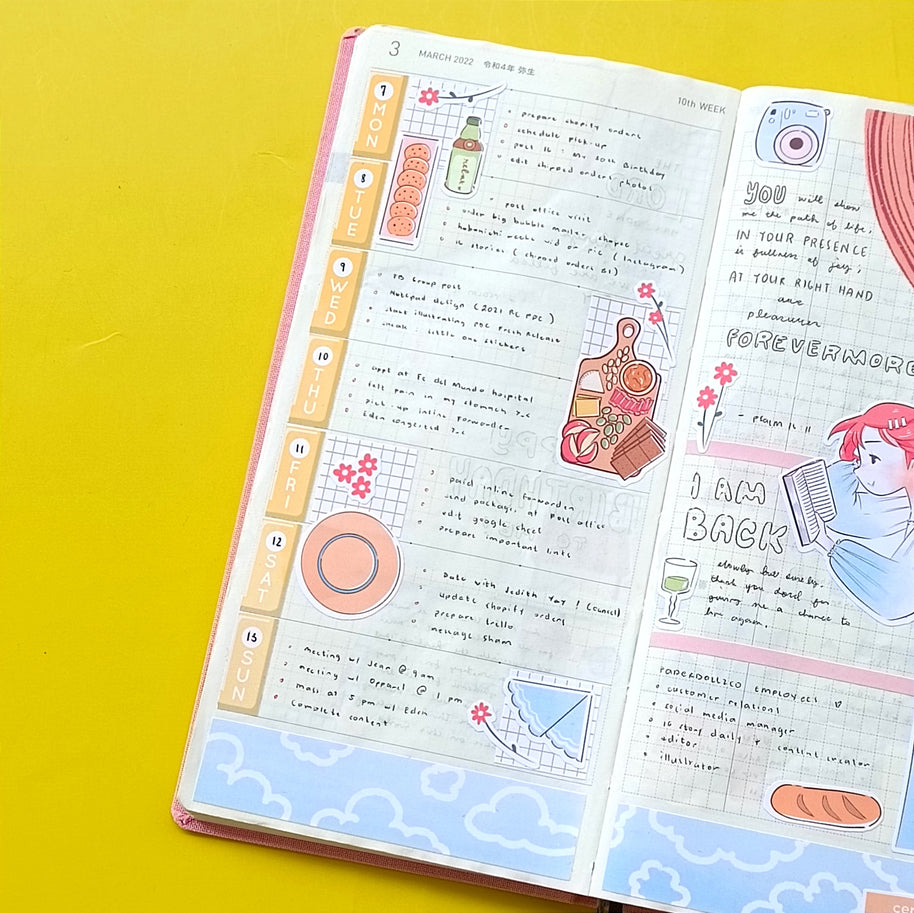 3 MARCH 2022 令和4年 弥生
10th WEEK
7 MON
prepare shopify orders
schedule pick-up
post 16 : Mo 20th Birthday
edit shipped orders photos
8 TUE
post office visit
order big bubble mailer shopee
hobonichi weeks vid or pic (Instagram)
16 stories (shipped orders 81)
9 WED
FB Group post
Notepad design (2021 RL PDC)
start illustrating PDC Fresh Release
: little one stickers
10 THU
appt at Fe del Mundo hospital
felt pain in my stomach
pick up inline forwarder
Eden congested
11 FRI
paid inline forwarder
send package at Post office
edit google sheet
prepare important links
12 SAT
Date with Jedith Yay! (Cancel)
update shopify orders
prepare trello
message sham
13 SUN
meeting w/ Jean @ 9am
meeting w/ Oppacl @ 1 pm
mass at 5 pm w/ Eden
Complete content
YOU will show
me the path of life;
IN YOUR PRESENCE
is fullness of joy;
AT YOUR RIGHT HAND
are
pleasures
FOREVERMORE
- psalm 16:11
I AM
BACK
slowly but surely.
thank you Lord for
giving me a chance to
live again.
PAPERDOLLZCO EMPLOYEES
customer relations
social media manager
16 story daily + content creator
editor
illustrator